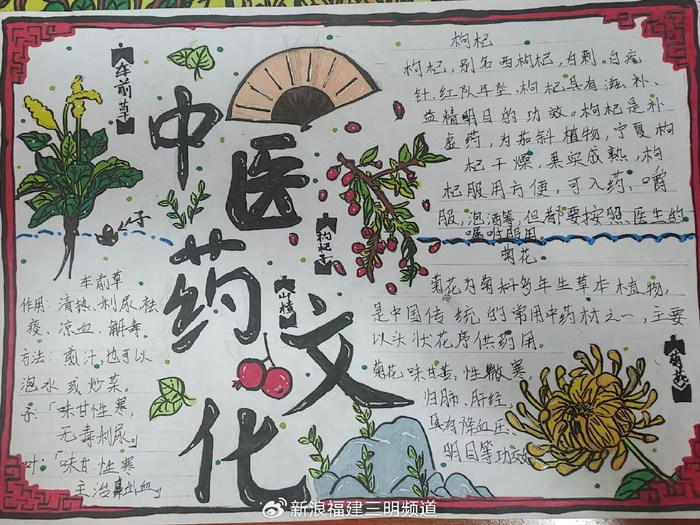 中医药文化
车前草
子
车前草
作用：清热、利尿祛
痰、凉血、解毒。
方法：煎汁，也可以
泡水或炒菜。
子：「味甘性寒，
无毒利尿。」
叶：「味甘性寒
主治鼻出血」
枸杞子
山楂
枸杞
枸杞，别名西枸杞，白刺，白疙
针，红耳坠。枸杞具有滋补、
益精明目的功效。枸杞是补
虚药，为茄科植物，宁夏枸
杞干燥果实成熟，枸
杞服用方便，可入药，嚼
服，泡酒等，但都要按照医生的
嘱咐服用
菊花
菊花为菊科多年生草本植物，
是中国传统的常用中药材之一，主要
以头状花序供药用。
菊花味甘苦，性微寒
归肺，肝经
具有降血压
明目等功效
菊花
新浪福建三明频道